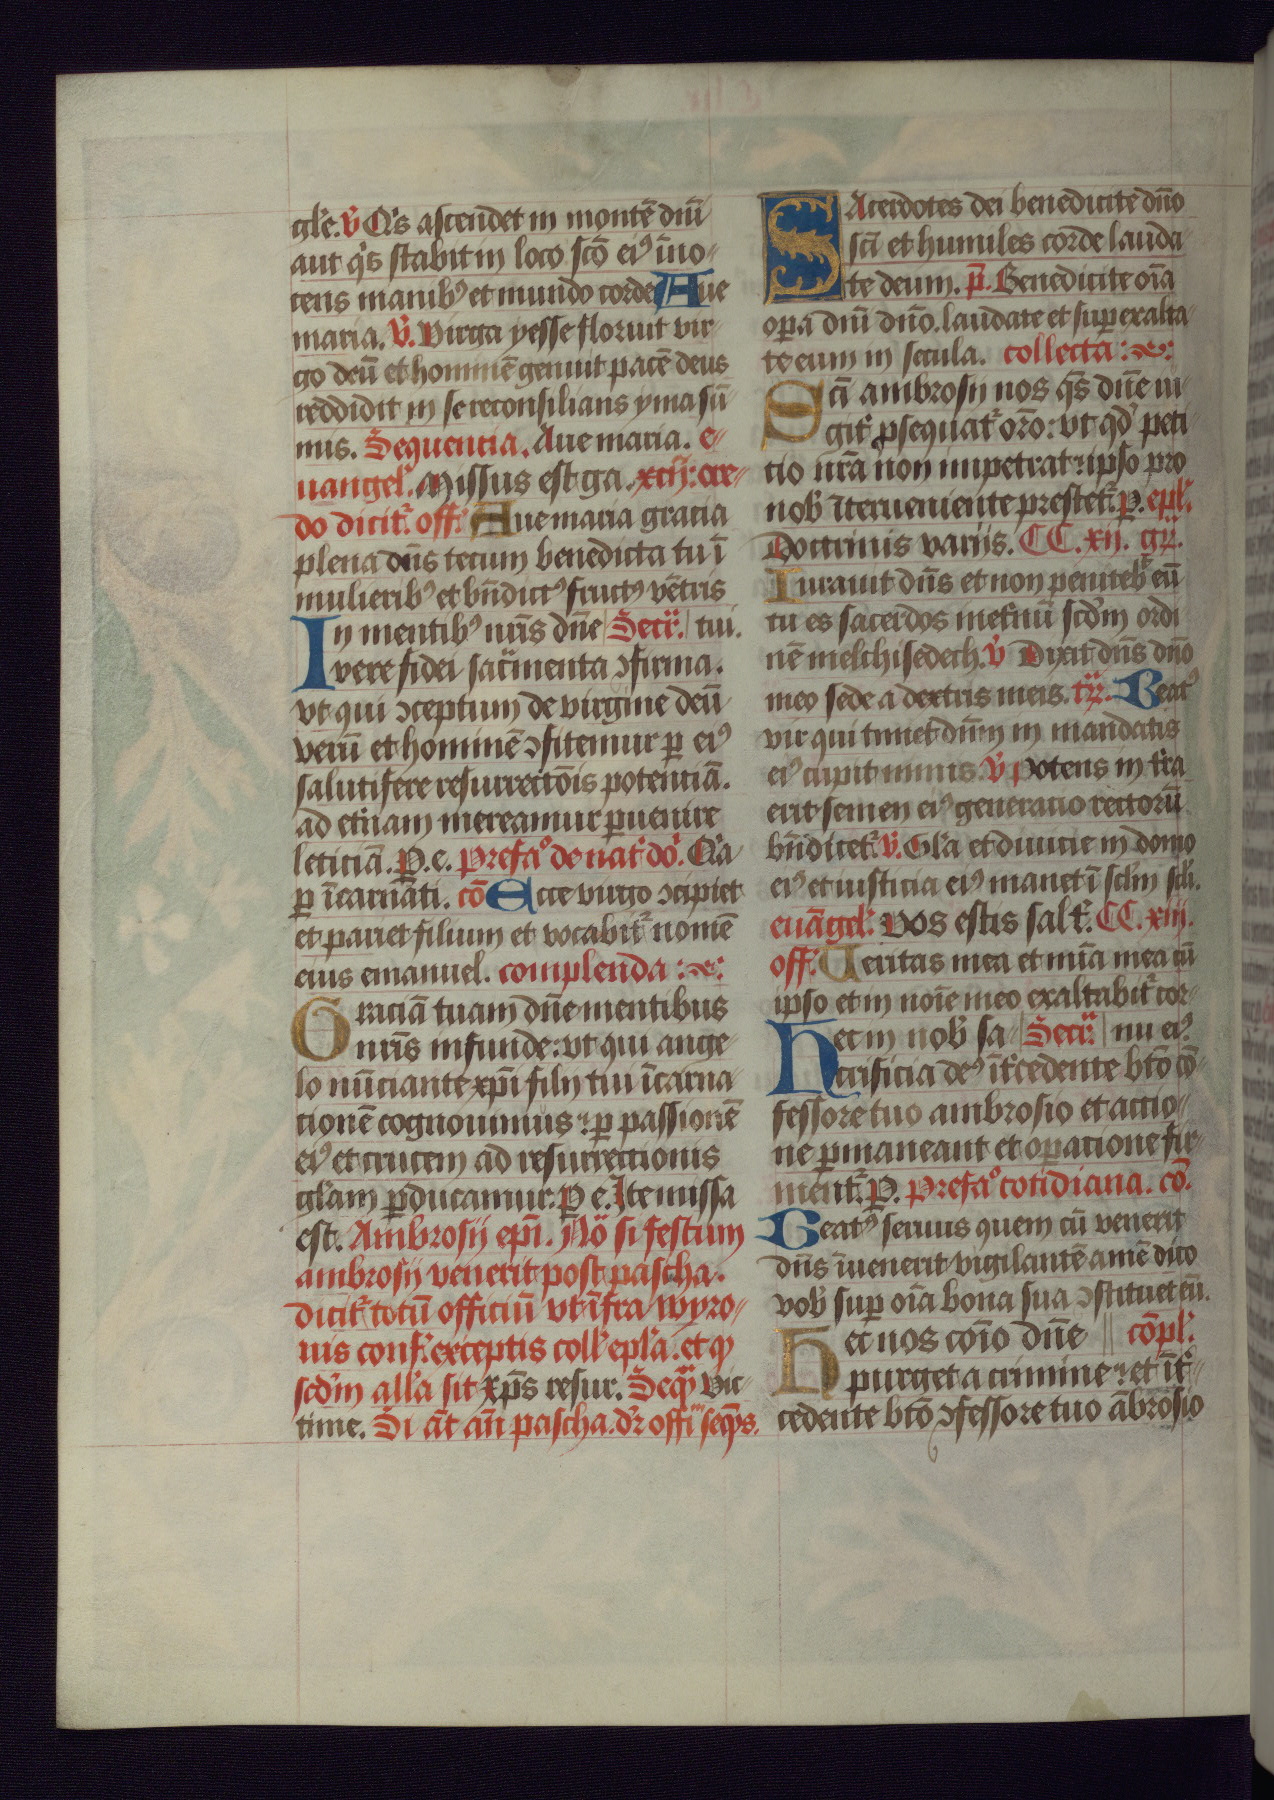 gl'e. v̄ Q's ascendet in montē dn̄i
aut q's stabit in loco sc̄o eiꝰ īno-
cens manibꝰ et mundo corde Aue
maria. v̄. Virga yesse floruit vir-
go deū et hominē genuit pacē deus
reddidit in se reconsilians yma sū-
mis. Sequentia. Aue maria. e-
uangel'. Missus est ga. xciij: cre-
do dicit̄. off. Aue maria gracia
plena dn̄s tecum benedicta tu ī
mulieribꝰ et bn̄dictꝰ fructꝰ vētris
In mentibꝰ nr̄is dn̄e Secr̄. tui.
vere fidei sacr̄menta ꝯfirma.
vt qui ꝯceptum de virgine deū
verū et hominē ꝯfitemur ꝑ eiꝰ
salutifere resurrectōis potenciā.
ad et̄nam mereamur ꝑuenire
leticiā. P. e. Prefaꝰ de nat' do'. Q'a
ꝑ īcarnāti. cō Ecce virgo ꝯcipiet
et pariet filium et vocabit̄ nomē
eius emanuel. complenda :
Graciā tuam dn̄e mentibus
nr̄is infunde: vt qui ange-
lo nūciante xp̄i filij tui īcarna-
tionē cognouimus: ꝑ passionē
eiꝰ et crucem ad resurrectionis
gl'am ꝑducamur. P e. Ite missa
est. Ambrosij ep̄i. No si festum
ambrosij venerit post pascha.
dicit̄ totū officiū vt īfra wyro-
nis conf. exceptis coll' epl'a. et ꝙ
scd'm all'a sit xp̄s resur. Seq̄ vic-
time. Si āt ān pascha. dr' offī seq̄s.
SAcerdotes dei benedicite dn̄o
sc̄i et humiles corde lauda-
te deum. p̄. Benedicite oīa
opa dn̄i dn̄o. laudate et supexalta-
te eum in secula. collecta :
Sc̄i ambrosij nos q̄s dn̄e iu-
git' ꝓsequat̄ orō: vt qd' peti
tio nr̄a non impetrat: ipso pro
nob' īterueniente prestet̄. P. epl'.
Doctrinis variis. CC. xij. gr̄.
Iurauit dn̄s et non penitebꝰ eū
tu es sacerdos inet'nū scd'm ordi
nē melchisedech. v̄ Dixit dn̄s dn̄o
meo sede a dextris meis. tr̄. Beatꝰ
vir qui timet dn̄m in mandatis
eiꝰ cupit nimis. v̄ Potens in t'ra
erit semen eiꝰ generatio rectorū
bn̄dicet̄. v̄. Gl'a et diuicie in domo
eiꝰ et iusticia eiꝰ manet ī scl'm scl'i.
euāgel'. Vos estis sal t'. CC. xiij.
off. Veritas mea et mīa mea cū
ipso et in noīe meo exaltabit̄ cor-
Hec in nob' sa- Secr̄. nu eiꝰ.
crificia deꝰ īt'cedente bt̄o cō-
fessore tuo ambrosio et actio-
ne ꝑmaneant et opacione fir-
ment̄. P. Prefaꝰ cotidiana. cō.
Beatꝰ seruus quem cū venerit
dn̄s īuenerit vigilantē amē dico
vob' sup oīa bona sua ꝯstituet eū.
Hec nos coīo dn̄e cōpl'.
purget a crimine: et īt'-
cedente bt̄o ꝯfessore tuo ābrosio